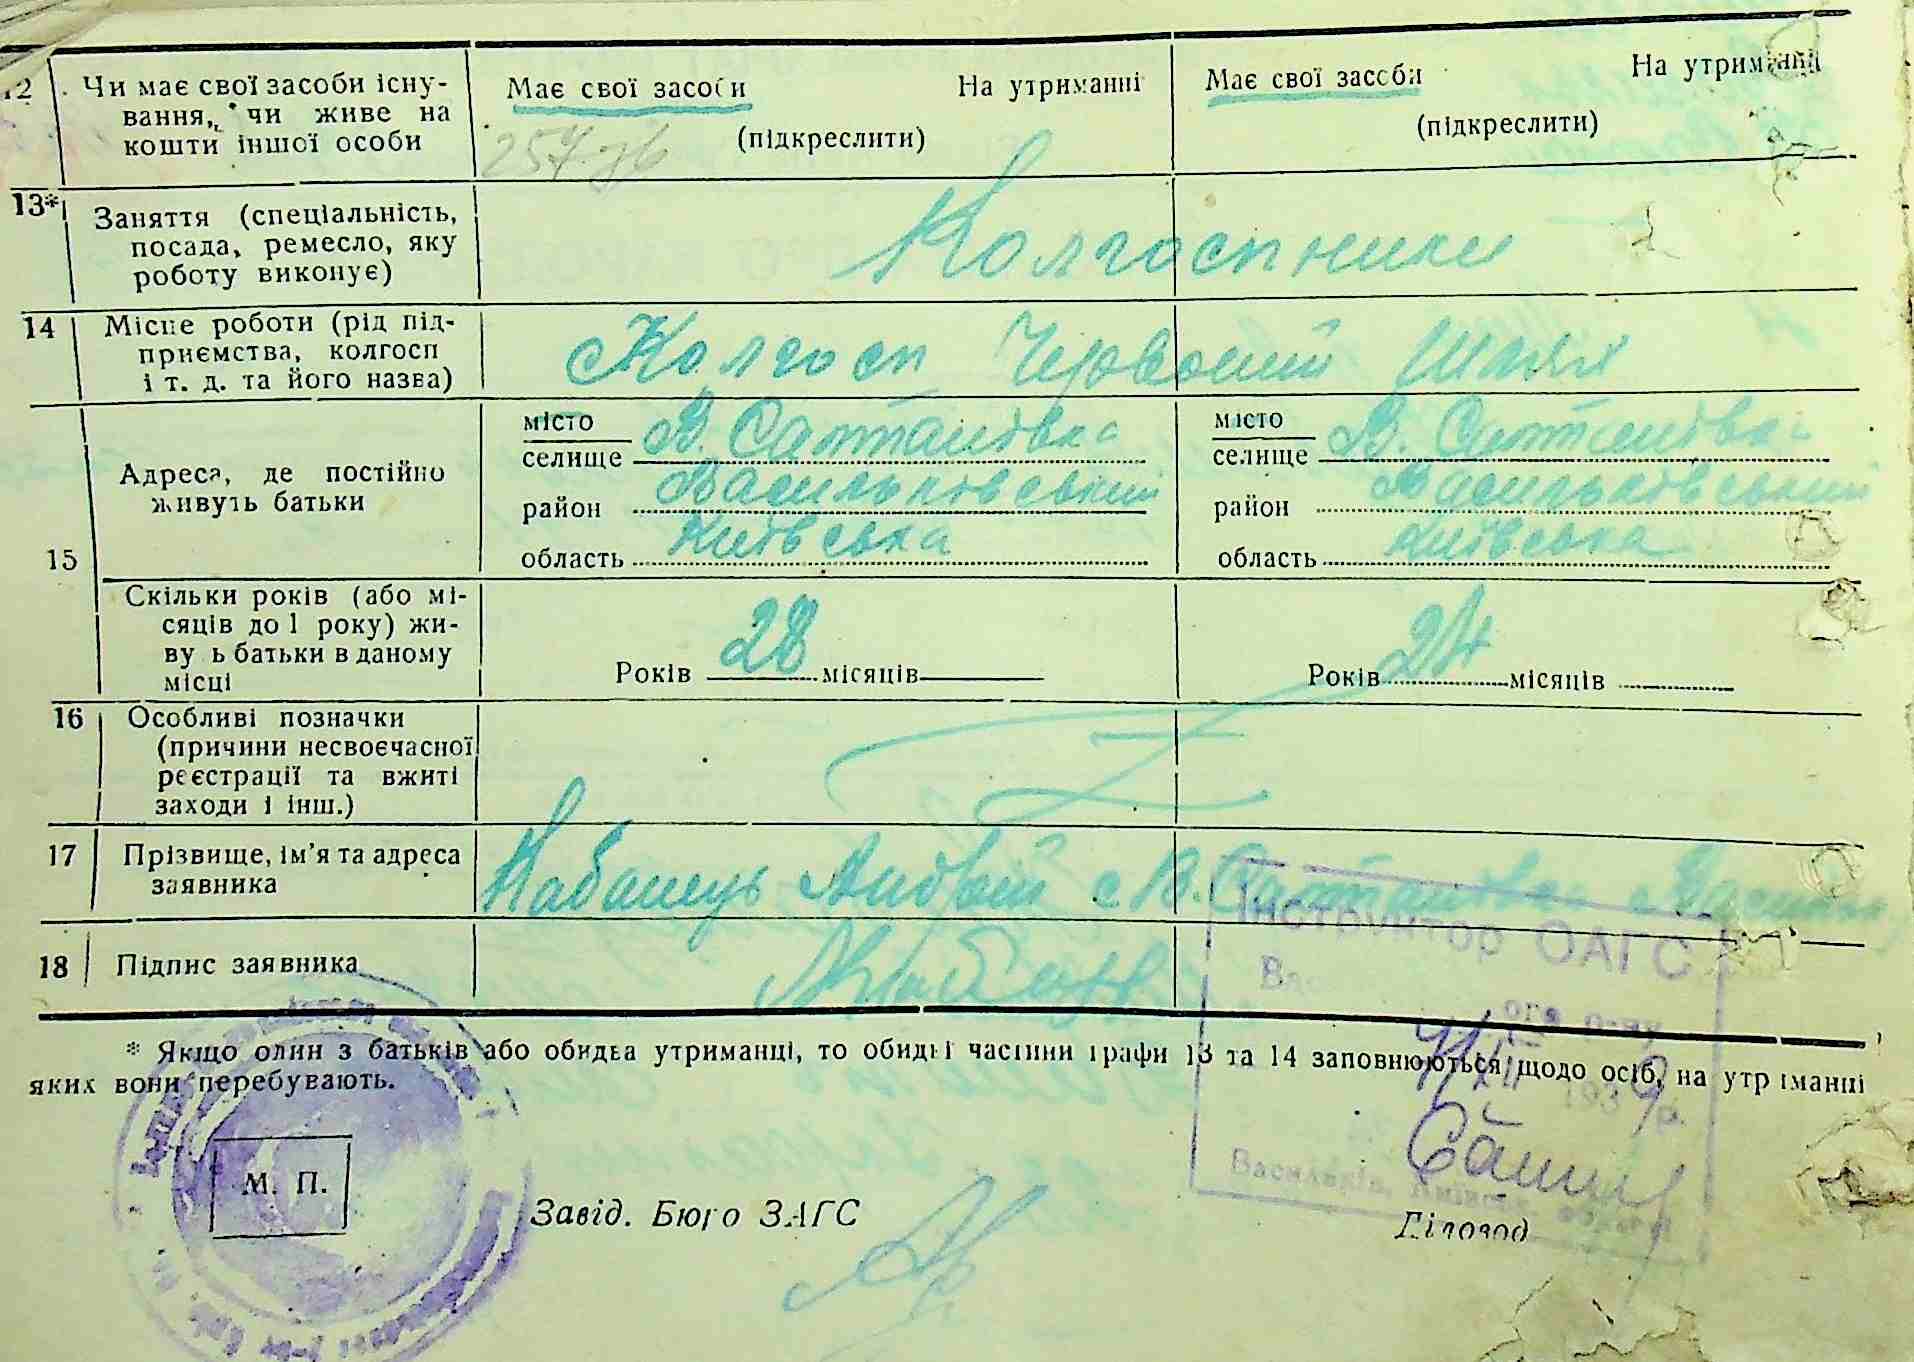 12 Чи має свої засоби існу-
вання, чи живе на
кошти іншої особи
Має свої засоби На утриманні
(підкреслити)
Має свої засоби На утриманні
(підкреслити)
13* Заняття (спеціальність,
посада, ремесло, яку
роботу виконує)
Колгоспники
14 Місце роботи (рід під-
приємства, колгосп
і т. д. та його назва)
Колгосп Червоний Шлях
15 Адреса, де постійно
живуть батьки
місто
селище В. Салтанівка
район Васильківський
область Київська
місто
селище В. Салтанівка
район Васильківський
область Київська
Скільки років (або мі-
сяців до 1 року) жи-
вуть батьки в даному
місці
Років 28 місяців
Років 24 місяців
16 Особливі позначки
(причини несвоєчасної
реєстрації та вжиті
заходи і інш.)
17 Прізвище, ім'я та адреса
заявника
Андрій с В. Салтанівка
18 Підпис заявника
Інструктор ОАГС
ого р-ну
* Якщо один з батьків або обидва утриманці, то обидві частини графи 13 та 14 заповнюються щодо осіб, на утриманні
яких вони перебувають.
1939 р.
М. П.
Завід. Бюро ЗАГС
Васильків, Київськ. області
Діловод